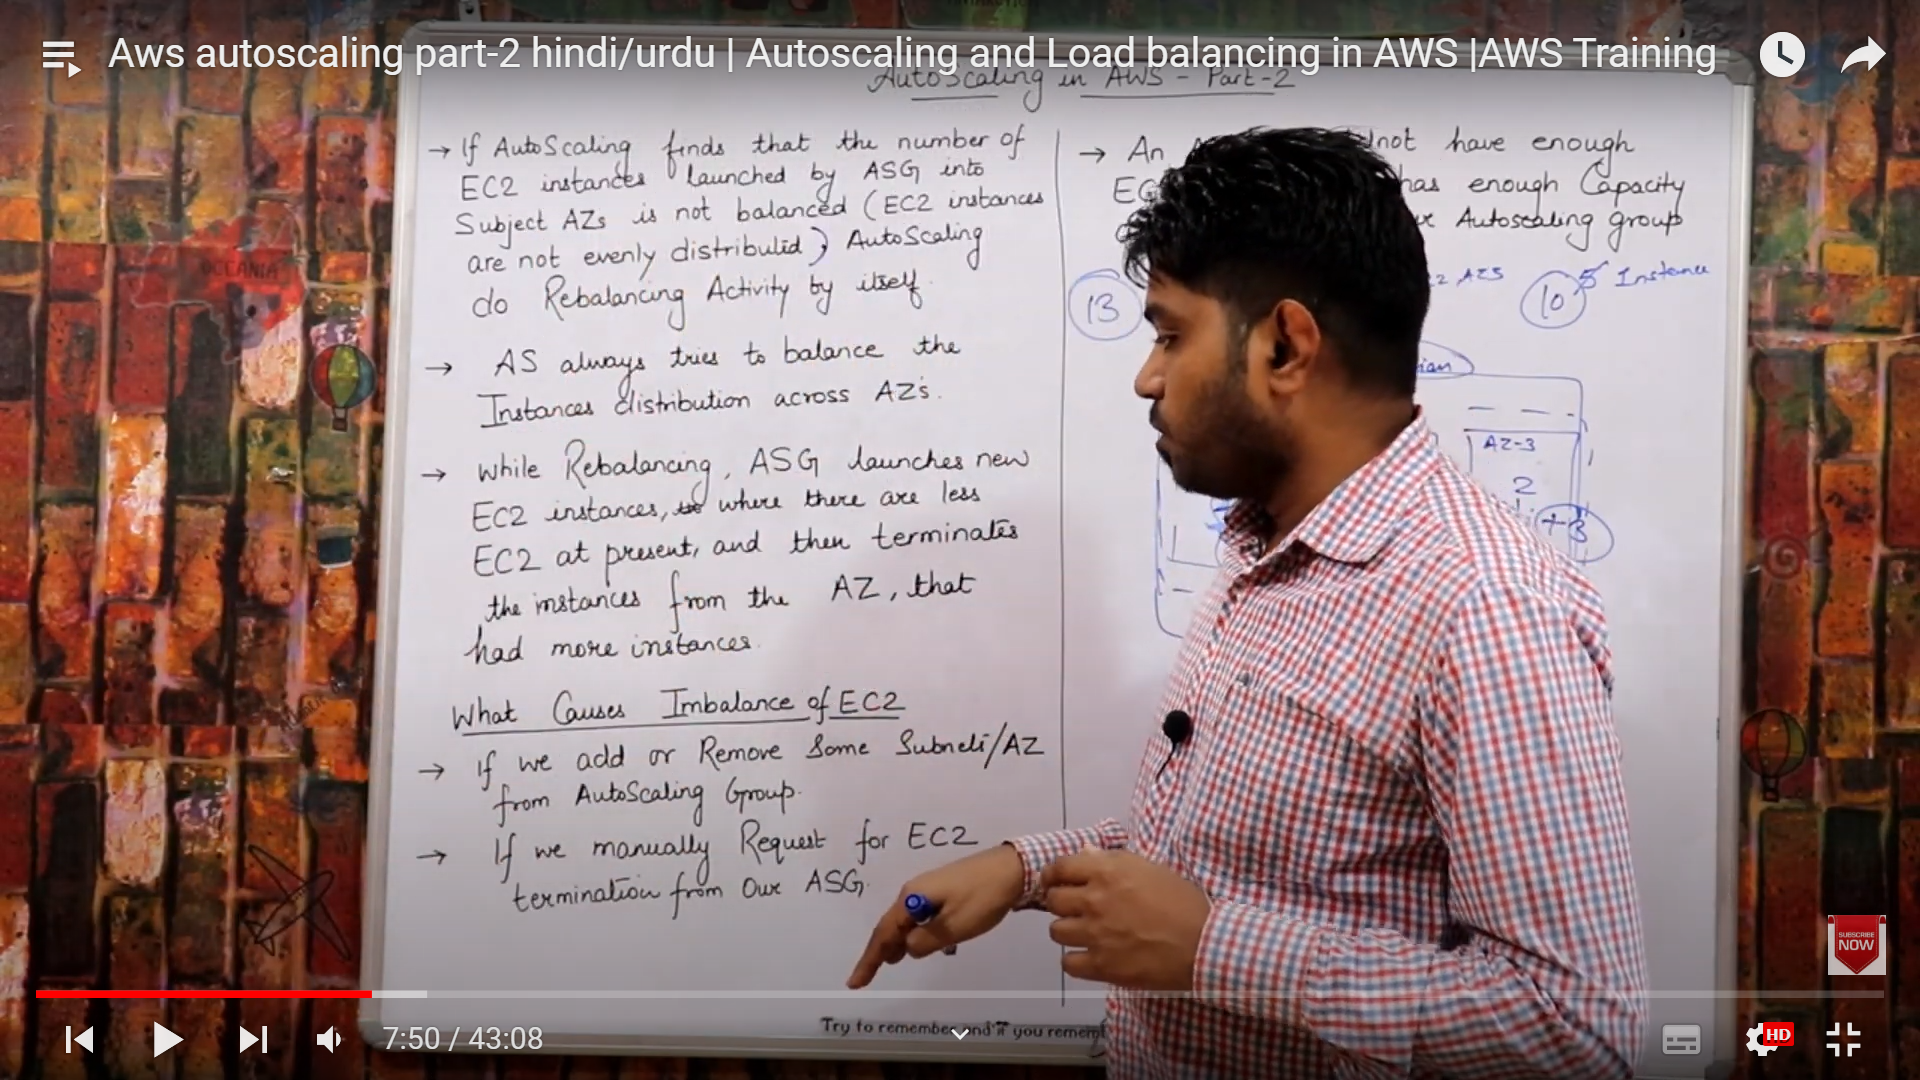 Aws autoscaling part-2 hindi/urdu | Autoscaling and Load balancing in AWS |AWS Training
AutoScaling in AWS - Part-2
→ If AutoScaling finds that the number of
EC2 instances launched by ASG into
Subject AZs is not balanced (EC2 instances
are not evenly distributed) AutoScaling
do Rebalancing Activity by itself.
→ AS always tries to balance the
Instances distribution across AZ's.
→ while Rebalancing, ASG launches new
EC2 instances, where there are less
EC2 at present, and then terminates
the instances from the AZ, that
had more instances.
What Causes Imbalance of EC2
→ If we add or Remove Some Subnets/AZ
from AutoScaling Group.
→ If we manually Request for EC2
termination from Our ASG.
→ An not have enough
has enough Capacity
Autoscaling group
13
2 AZS
10
5 Instance
AZ-3
2
+3
OCEANIA
SUBSCRIBE
NOW
Try to remember and if you rememb
7:50 / 43:08
HD